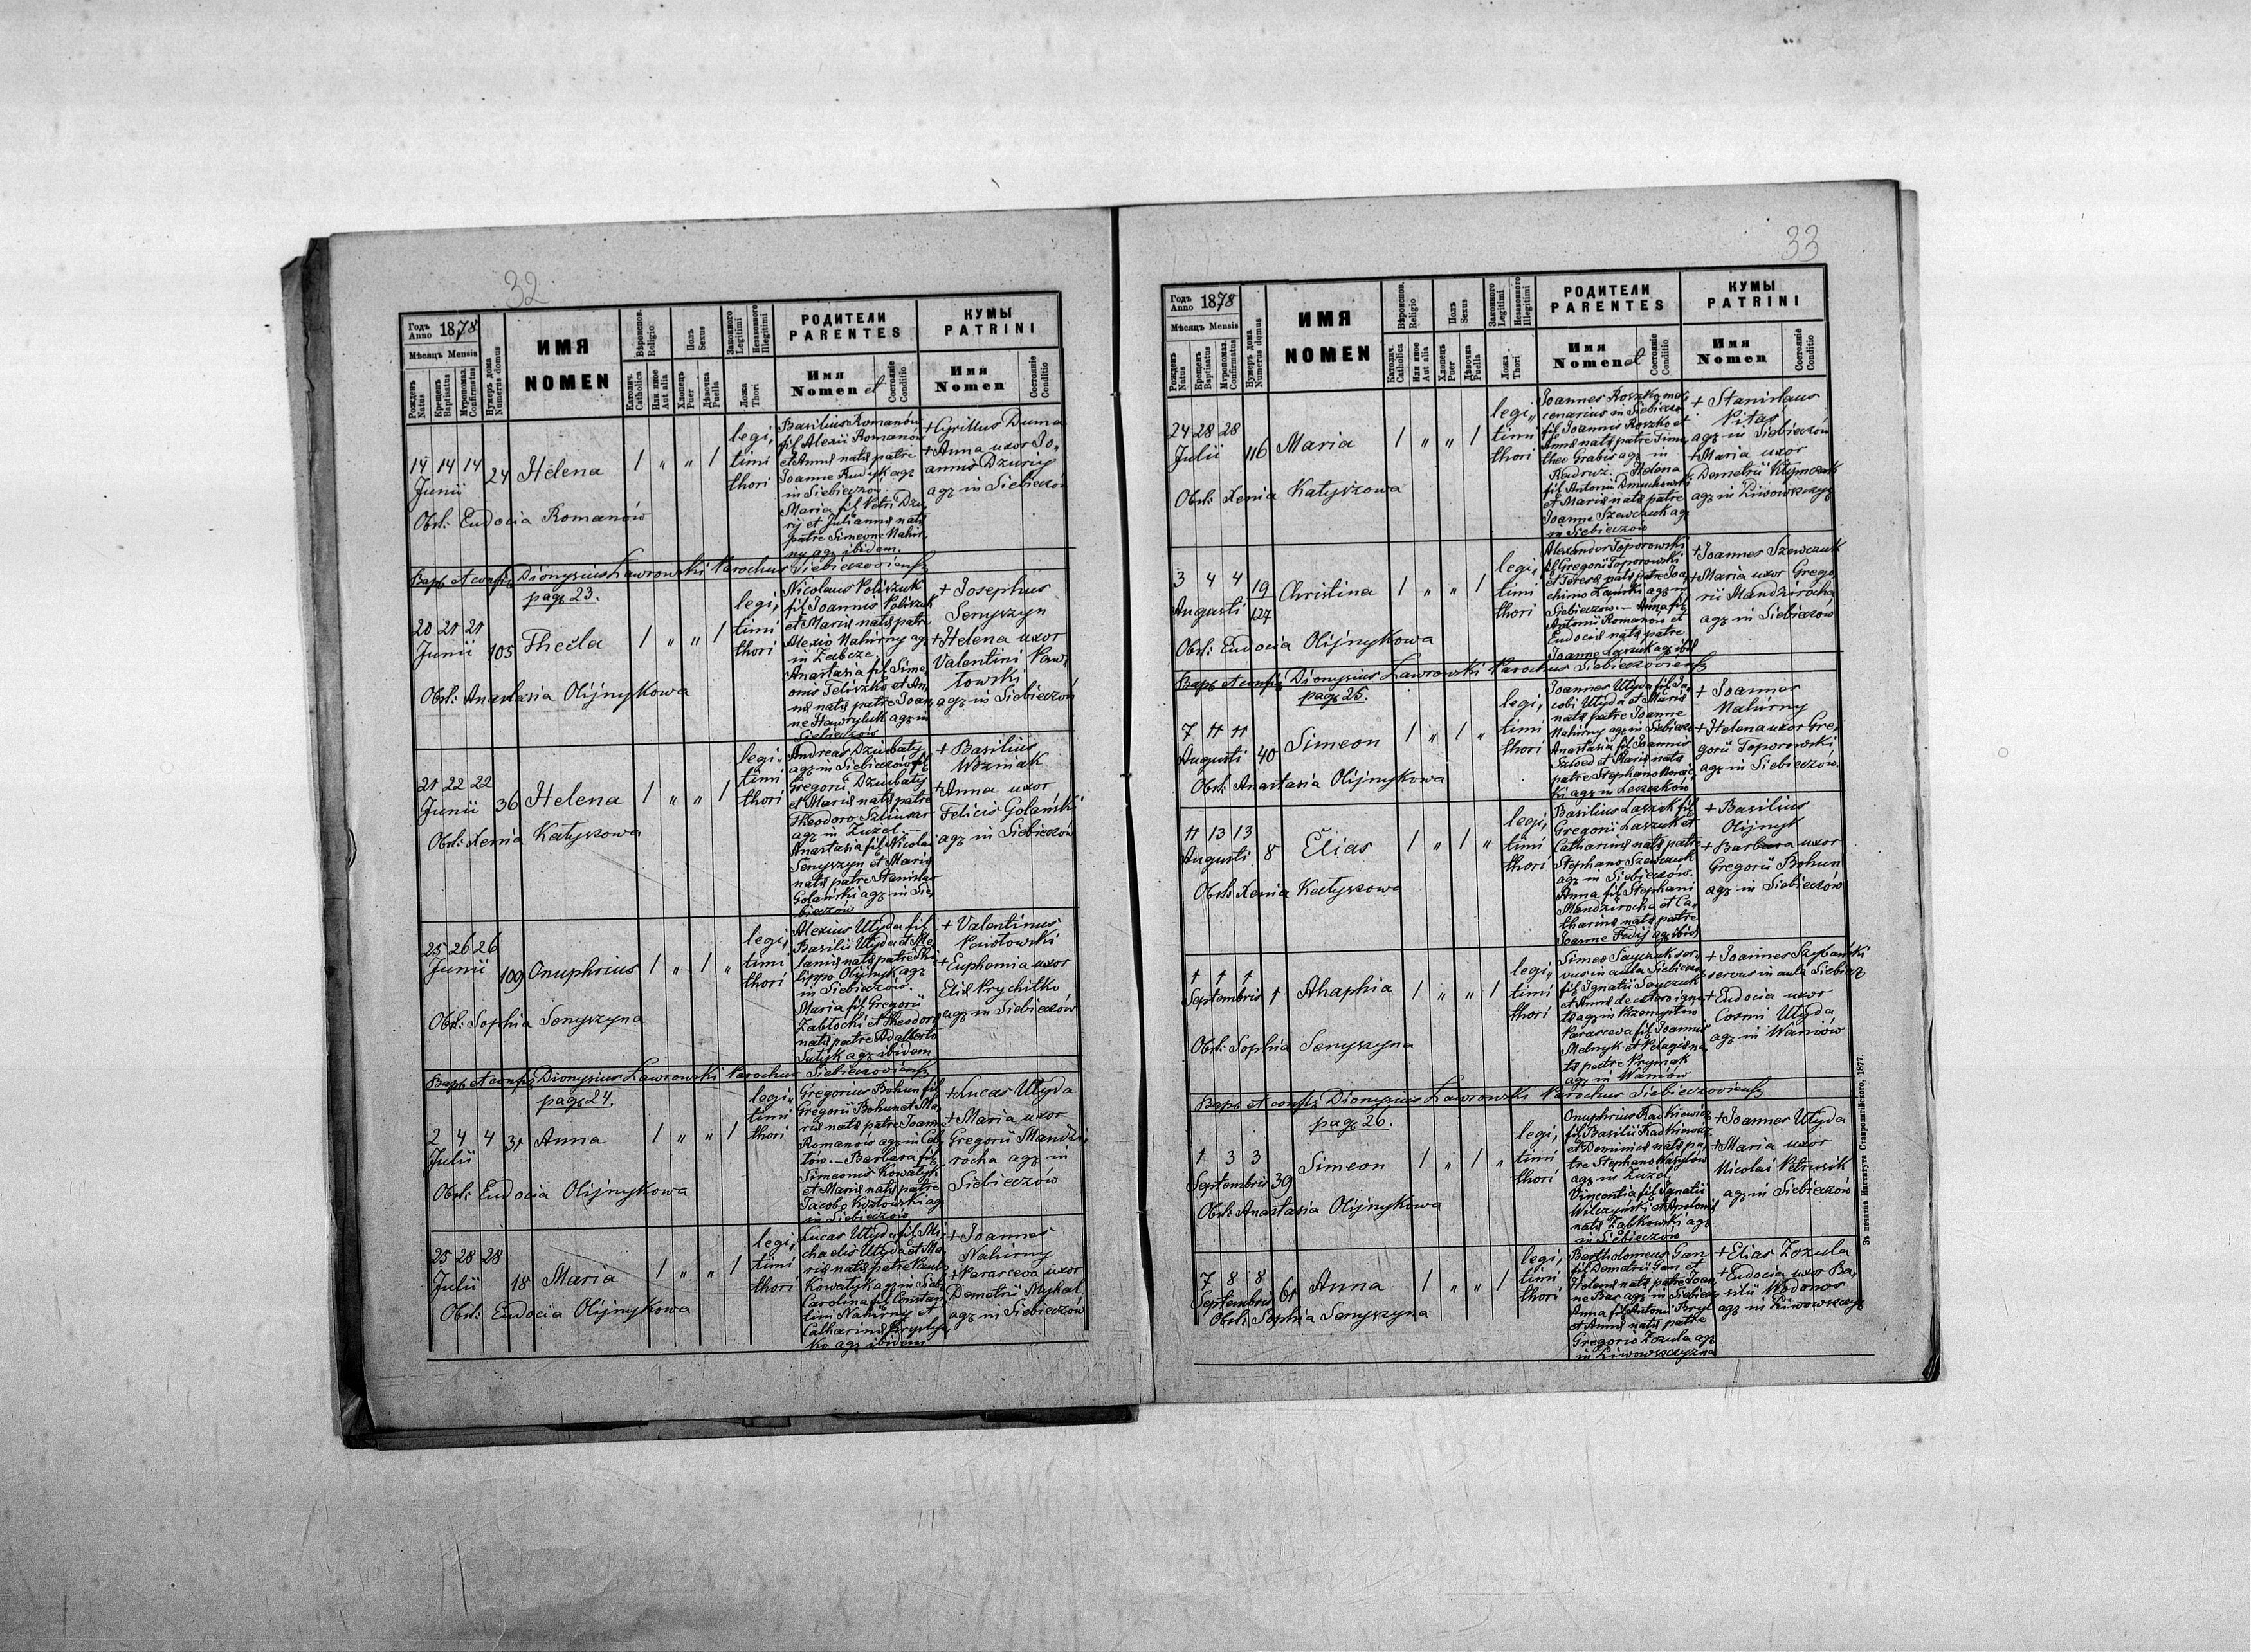 32
Годъ
Anno 1878
Мѣсяцъ Mensis
Рожденъ
Natus
Крещенъ
Baptisatus
Мѵропомаз.
Confirmatus
Нумеръ дома
Numerus domus
ИМЯ
NOMEN
Вѣроиспов.
Religio
Католич.
Catholica
Или иное
Aut alia
Полъ
Sexus
Хлопецъ
Puer
Дѣвочка
Puella
Законного
Legitimi
Незаконного
Illegitimi
Ложа
Thori
РОДИТЕЛИ
PARENTES
Имя
Nomen et
Состояніе
Conditio
КУМЫ
PATRINI
Имя
Nomen
Состояніе
Conditio
14 14 14
Junii
24 Helena 1 " " 1
legi,
timi
thori
Basilius Romanów
fil Alexii Romanów
et Anna nata patre
Joanne Rudyk agr
in Siebieczów.
Maria fil Petri Dzu,
rij et Julianna nata
patre Simeone Nahir,
ny agr ibidem.
+ Cyrillus Duma
+ Anna uxor Jo,
annis Dzurij
agr in Siebieczów
Obst: Eudocia Romanów
Bapt et confir Dionysius Ławrowski Parochus Siebieczoviens
pag 23.
20 21 21
Junii
105 Thecla 1 " " 1
legi,
timi
thori
Nicolaus Poliszuk
fil Joannis Poliszuk
et Maria nata patre
Alexio Nahirny agr
in Zabcze.
Anastasia fil Sime,
onis Teliszko et An,
na nata patre Joan,
ne Hawryluk agr in
Siebieczów
+ Josephus
Senyszyn
+ Helena uxor
Valentini Paw,
łowski
agr in Siebieczów
Obst: Anastasia Olijnykowa
21 22 22
Junii
36 Helena 1 " " 1
legi,
timi
thori
Andreas Dziubaty
agr in Siebieczów fil
Gregorii Dziubaty
et Maria nata patre
Theodoro Szlusar
agr in Zuzel.
Anastasia fil Nicolai
Senyszyn et Maria
nata patre Stanislao
Golański agr in Sie,
bieczów
+ Basilius
Wozniak
+ Anna uxor
Felicis Golański
agr in Siebieczów
Obst: Xenia Katyszowa
25 26 26
Junii
109 Onuphrius 1 " 1 "
legi,
timi
thori
Alexius Utyda fil
Basilii Utyda et Me,
lania nata patre Phi
lippo Olijnyk agr
in Siebieczów.
Maria fil Gregorii
Zabłocki et Theodora
nata patre Adalberto
Sutyk agr ibidem
+ Valentinus
Pawłowski
+ Euphemia uxor
Elia Prychitko
agr in Siebieczów
Obst: Sophia Senyszyna
Bapt et confir Dionysius Ławrowski Parochus Siebieczoviens
pag 24.
2 4 4
Julii
31 Anna 1 " " 1
legi,
timi
thori
Gregorius Bohun fil
Gregorii Bohun et Ma,
ria nata patre Joanne
Romanów agr in Ceb,
łów. — Barbara fil
Simeonis Kowatyk
et Maria nata patre
Jacobo Kozłowski agr
in Siebieczów
+ Lucas Utyda
+ Maria uxor
Gregorii Mandzi,
rocha agr in
Siebieczów
Obst: Eudocia Olijnykowa
25 28 28
Julii
18 Maria 1 " " 1
legi,
timi
thori
Lucas Utyda fil Mi,
chaelis Utyda et Ma,
ria nata patre Paulo
Kowatyk agr in Sieb,
Carolina fil Constan,
tini Nahirny et
Catharina Prystaj,
ko agr ibidem
+ Joannes
Nahirny
+ Parasceva uxor
Demetrii Mykal
agr in Siebieczów
Obst: Eudocia Olijnykowa
33
Годъ
Anno 1878
Мѣсяцъ Mensis
Рожденъ
Natus
Крещенъ
Baptisatus
Мѵропомаз.
Confirmatus
Нумеръ дома
Numerus domus
ИМЯ
NOMEN
Вѣроиспов.
Religio
Католич.
Catholica
Или иное
Aut alia
Полъ
Sexus
Хлопецъ
Puer
Дѣвочка
Puella
Законного
Legitimi
Незаконного
Illegitimi
Ложа
Thori
РОДИТЕЛИ
PARENTES
Имя
Nomen et
Состояніе
Conditio
КУМЫ
PATRINI
Имя
Nomen
Состояніе
Conditio
24 28 28
Julii
116 Maria 1 " " 1
legi,
timi
thori
Joannes Roszko mer,
cenarius in Siebieczów
fil Joannis Roszko et
Anna nata patre Timo,
theo Grabis agr in
Radruz. Helena
fil Antonii Dmuchowski
et Maria nata patre
Joanne Szewczuk agr
in Siebieczów
+ Stanislaus
Pitas
agr in Siebieczów
+ Maria uxor
Demetrii Klymczuk
agr in Liwowszczyz
Obst: Xenia Katyszowa
3 4 4
Augusti
19
127
Christina 1 " " 1
legi,
timi
thori
Alexander Toporowski
fil Gregorii Toporowski
et Teresa nata patre Joa,
chimo Laniki agr in
Siebieczów. — Anna fil
Antonii Romanów et
Eudocia nata patre
Joanne Laszuk agr ibid
+ Joannes Szewczuk
+ Maria uxor Grego,
rii Mandzirocha
agr in Siebieczów
Obst: Eudocia Olijnykowa
Bapt et confir Dionysius Ławrowski Parochus Siebieczoviens
pag 25.
7 11 11
Augusti
40 Simeon 1 " 1 "
legi,
timi
thori
Joannes Utyda fil Ja,
cobi Utyda et Maria
nata patre Joanne
Nahirny agr in Siebieczów
Anastasia fil Joannis
Szwed et Maria nata
patre Stephano Nowic,
ki agr in Leszczków
+ Joannes
Nahirny
+ Helena uxor Gre,
gorii Toporowski
agr in Siebieczów.
Obst: Anastasia Olijnykowa
11 13 13
Augusti
8 Elias 1 " 1 "
legi,
timi
thori
Basilius Laszuk fil
Gregorii Laszuk et
Catharina nata patre
Stephano Szewczuk
agr in Siebieczów.
Anna fil Stephani
Mandzirocha et Ca,
tharina nata patre
Joanne Fedij agr ibid
+ Basilius
Olijnyk
+ Barbara uxor
Gregorii Bohun
agr in Siebieczów
Obst: Xenia Katyszowa
1 1 1
Septembris
1 Ahaphia 1 " " 1
legi,
timi
thori
Simeo Sayczuk ser,
vus in aula Siebiecz
fil Ignatii Sayczuk
et Anna de cetero igno
ta agr in Przemysłów
Parasceva fil Joannis
Melnyk et Pelagia na,
ta patre Prymak
agr in Waniów
+ Joannes Szybański
servus in aula Siebiecz
+ Eudocia uxor
Cosmi Utyda
agr in Waniów
Obst: Sophia Senyszyna
Bapt et confir Dionysius Ławrowski Parochus Siebieczoviens
pag 26.
1 3 3
Septembris
39 Simeon 1 " 1 "
legi,
timi
thori
Onuphrius Radkiewicz
fil Basilii Radkiewicz
et Dominica nata pa,
tre Stephano Wasylów
agr in Zuzel
Vincentia fil Ignatii
Wilczyński et Apolonia
nata Zabkowski agr
in Siebieczów
+ Joannes Utyda
+ Maria uxor
Nicolai Petrusik
agr in Siebieczów
Obst: Anastasia Olijnykowa
7 8 8
Septembris
61 Anna 1 " " 1
legi,
timi
thori
Bartholomeus Gan
fil Demetrii Gan et
Helena nata patre Joan,
ne Bas agr in Siebiecz
Anna fil Antonii Bryl
et Anna nata patre
Gregorio Zozula agr
in Liwowszczyzna
+ Elias Zozula
+ Eudocia uxor Ba,
silii Wodonos
agr in Liwowszczyz
Obst: Sophia Senyszyna
Зъ печатнѣ Института Ставропигійского, 1877.